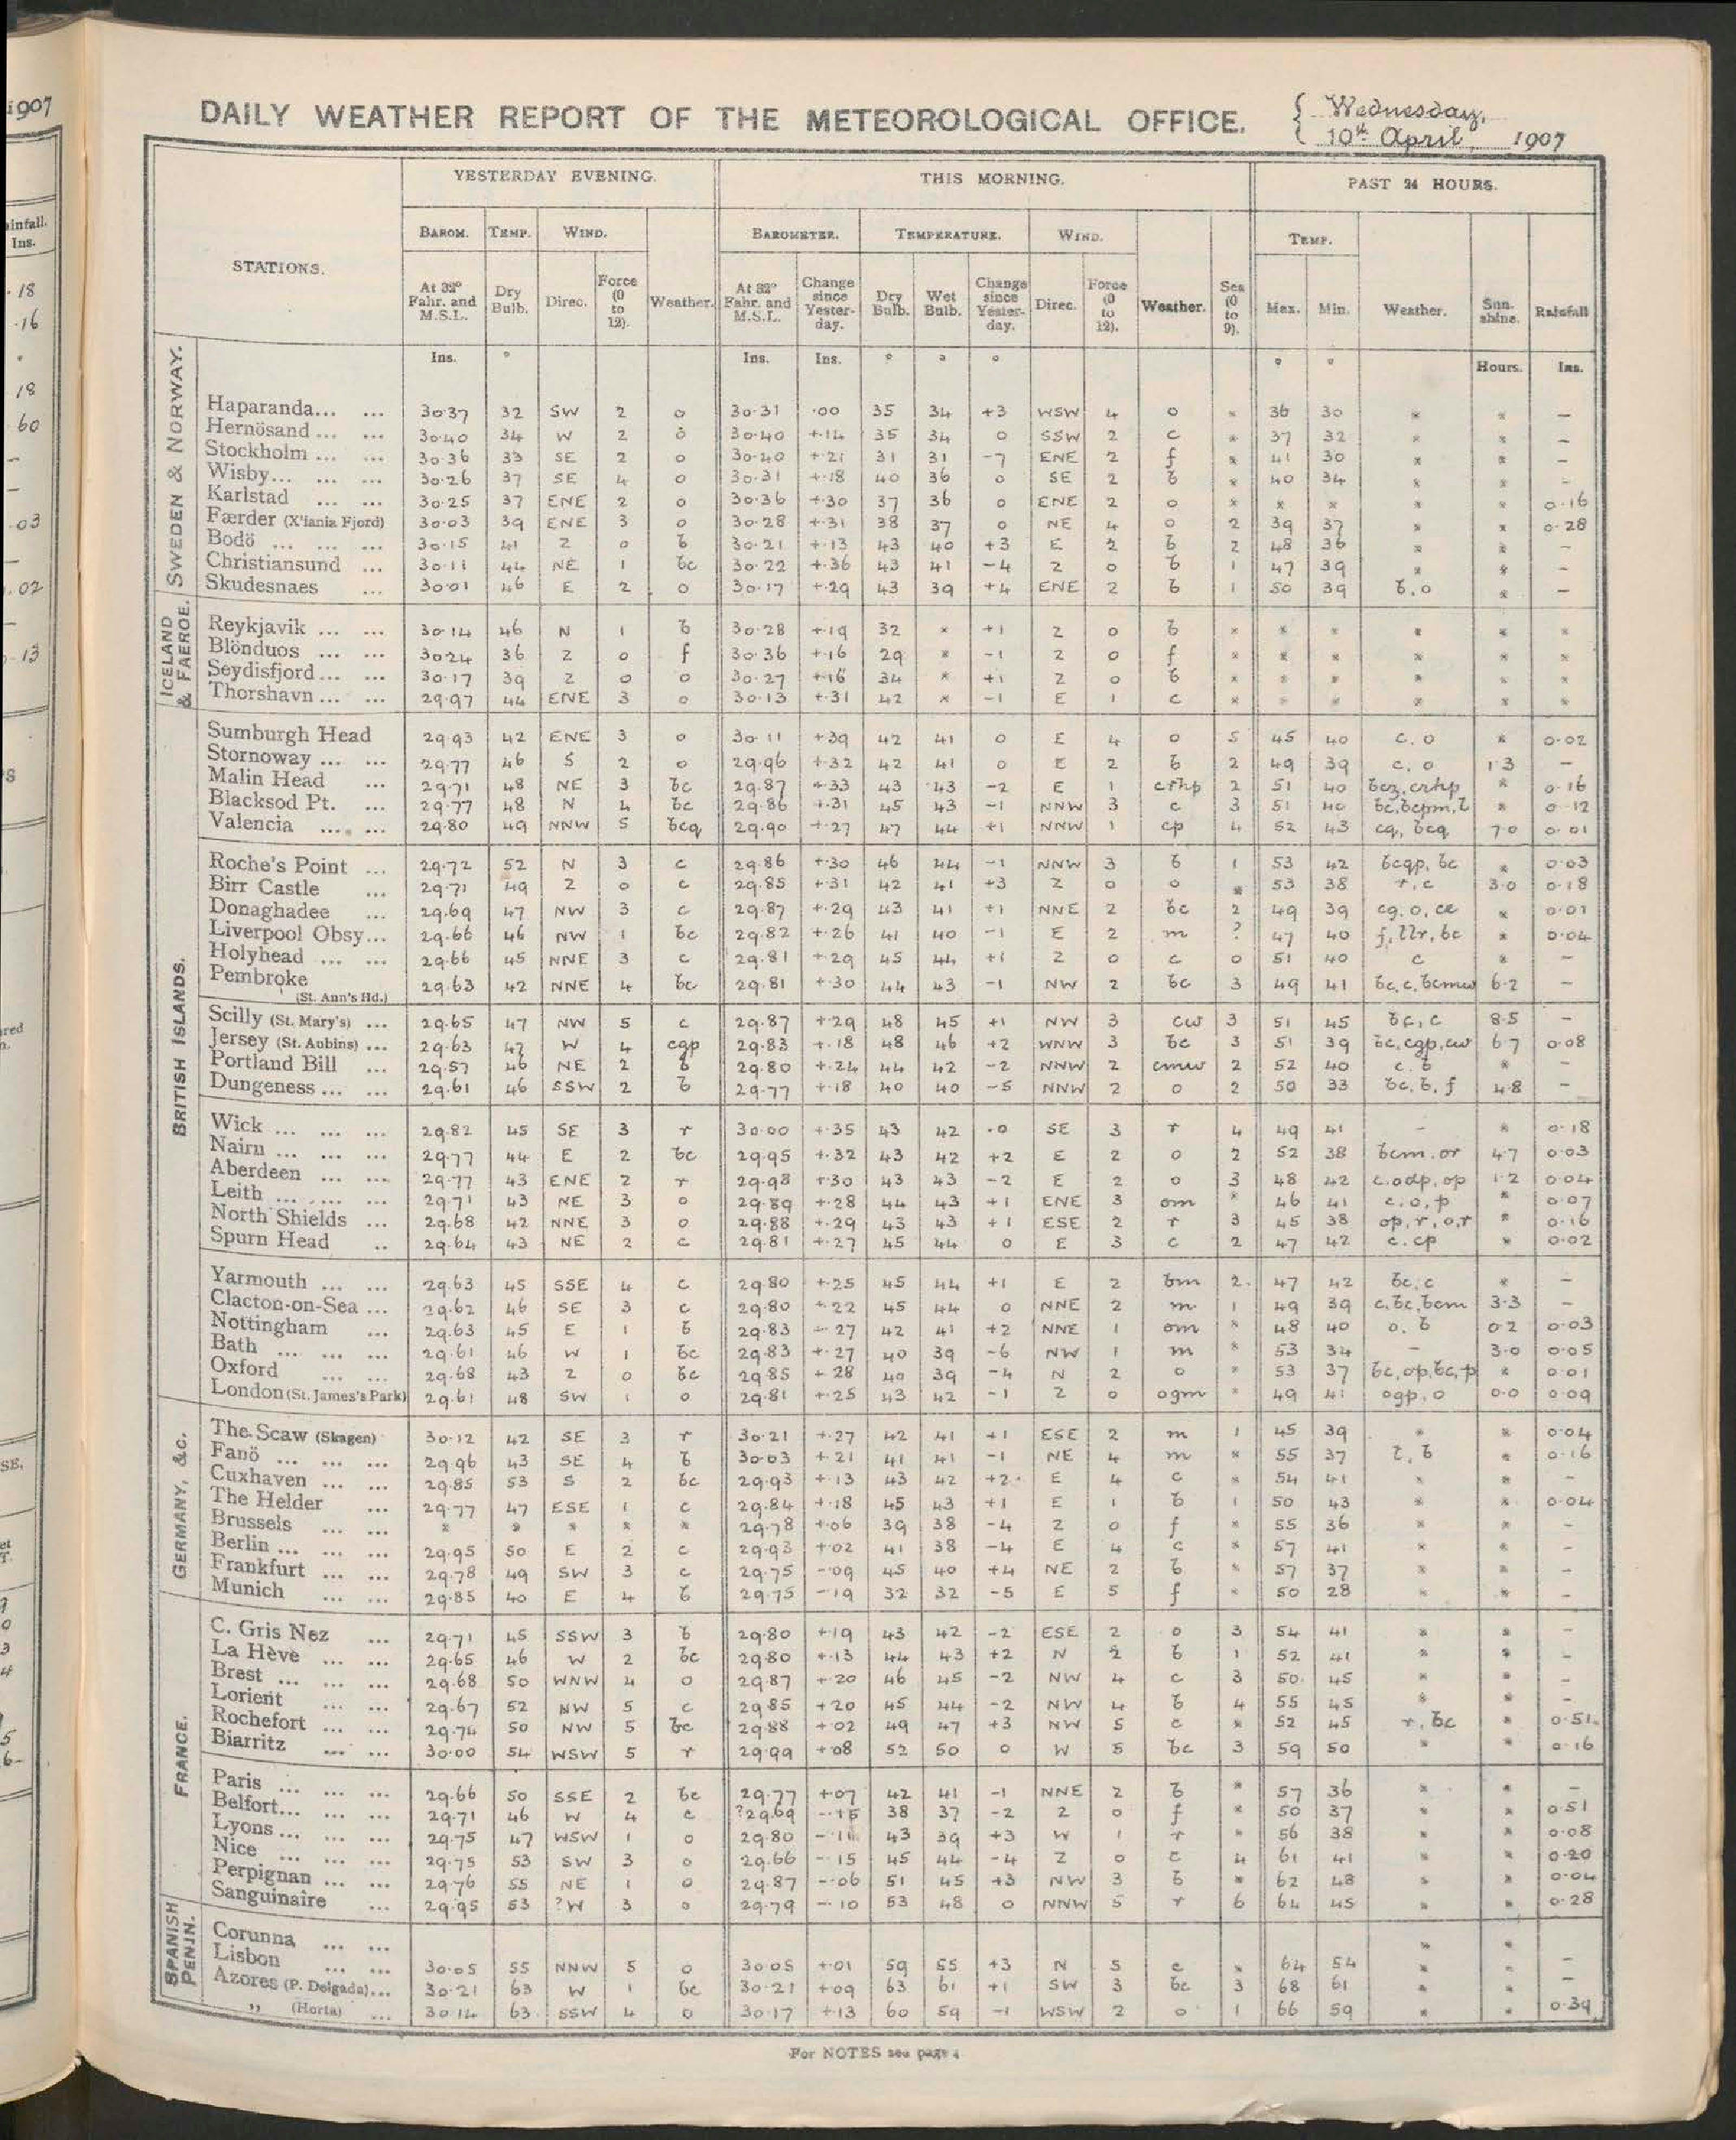 DAILY WEATHER REPORT OF THE METEOROLOGICAL OFFICE. { Wednesday,
{ 10th April, 1907
STATIONS. YESTERDAY EVENING. THIS MORNING. PAST 24 HOURS.
BAROM. TEMP. WIND. BAROMETER. TEMPERATURE. WIND. TEMP.
At 32° Fahr. and M.S.L. Dry Bulb. Direc. Force (0 to 12). Weather. At 32° Fahr. and M.S.L. Change since Yesterday. Dry Bulb. Wet Bulb. Change since Yesterday. Direc. Force (0 to 12). Weather. Sea (0 to 9). Max. Min. Weather. Sunshine. Rainfall
Ins. ° Ins. Ins. ° ° ° ° ° Hours. Ins.
SWEDEN & NORWAY.
Haparanda... ... 30·37 32 SW 2 o 30·31 ·00 35 34 +3 WSW 4 o * 36 30 * * —
Hernösand ... ... 30·40 34 W 2 o 30·40 +·14 35 34 0 SSW 2 c * 37 32 * * —
Stockholm ... ... 30·36 33 SE 2 o 30·40 +·21 31 31 −7 ENE 2 f * 41 30 * * —
Wisby... ... ... 30·26 37 SE 4 o 30·31 +·18 40 36 0 SE 2 b * 40 34 * * —
Karlstad ... ... 30·25 37 ENE 2 o 30·36 +·30 37 36 0 ENE 2 o * * * * * 0·16
Færder (X'iania Fjord) 30·03 39 ENE 3 o 30·28 +·31 38 37 0 NE 4 o 2 39 37 * * 0·28
Bodö ... ... ... 30·15 41 Z 0 b 30·21 +·13 43 40 +3 E 2 b 2 48 36 * * —
Christiansund ... 30·11 44 NE 1 bc 30·22 +·36 43 41 −4 Z 0 b 1 47 39 * * —
Skudesnaes ... 30·01 46 E 2 o 30·17 +·29 43 39 +4 ENE 2 b 1 50 39 b.o * —
ICELAND & FAEROE.
Reykjavik ... ... 30·14 46 N 1 b 30·28 +·19 32 * +1 Z 0 b * * * * * *
Blönduos ... ... 30·24 36 Z 0 f 30·36 +·16 29 * −1 Z 0 f * * * * * *
Seydisfjord... ... 30·17 39 Z 0 o 30·27 +·16 34 * +1 Z 0 b * * * * * *
Thorshavn ... ... 29·97 44 ENE 3 o 30·13 +·31 42 * −1 E 1 c * * * * * *
BRITISH ISLANDS.
Sumburgh Head 29·93 42 ENE 3 o 30·11 +·39 42 41 0 E 4 o 5 45 40 c.o * 0·02
Stornoway ... ... 29·77 46 S 2 o 29·96 +·32 42 41 0 E 2 b 2 49 39 c, o 1·3 —
Malin Head ... 29·71 48 NE 3 bc 29·87 +·33 43 43 −2 E 1 crhp 2 51 40 bcz,crhp * 0·16
Blacksod Pt. ... 29·77 48 N 4 bc 29·86 +·31 45 43 −1 NNW 3 c 3 51 40 bc,bcpm,l * 0·12
Valencia ... ... 29·80 49 NNW 5 bcq 29·90 +·27 47 44 +1 NNW 1 cp 4 52 43 cq, bcq 7·0 0·01
Roche's Point ... 29·72 52 N 3 c 29·86 +·30 46 44 −1 NNW 3 b 1 53 42 bcqp, bc * 0·03
Birr Castle ... 29·71 49 Z 0 c 29·85 +·31 42 41 +3 Z 0 o * 53 38 r,c 3·0 0·18
Donaghadee ... 29·69 47 NW 3 c 29·87 +·29 43 41 +1 NNE 2 bc 2 49 39 cg.o,ce * 0·01
Liverpool Obsy... 29·66 46 NW 1 bc 29·82 +·26 41 40 −1 E 2 m ? 47 40 f,llr,bc * 0·04
Holyhead ... ... 29·66 45 NNE 3 c 29·81 +·29 45 44 +1 Z 0 c 0 51 40 c * —
Pembroke (St. Ann's Hd.) 29·63 42 NNE 4 bc 29·81 +·30 44 43 −1 NW 2 bc 3 49 41 bc,c,bcmw 6·2 —
Scilly (St. Mary's) ... 29·65 47 NW 5 c 29·87 +·29 48 45 +1 NW 3 cw 3 51 45 bc,c 8·5 —
Jersey (St. Aubins) ... 29·63 47 W 4 cqp 29·83 +·18 48 46 +2 WNW 3 bc 3 51 39 bc,cqp,cw 6·7 0·08
Portland Bill ... 29·57 46 NE 2 b 29·80 +·24 44 42 −2 NNW 2 cmw 2 52 40 c.b * —
Dungeness ... ... 29·61 46 SSW 2 b 29·77 +·18 40 40 −5 NNW 2 o 2 50 33 bc,b,f 4·8 —
Wick ... ... ... 29·82 45 SE 3 r 30·00 +·35 43 42 ·0 SE 3 r 4 49 41 — * 0·18
Nairn ... ... ... 29·77 44 E 2 bc 29·95 +·32 43 42 +2 E 2 o 2 52 38 bcm.or 4·7 0·03
Aberdeen ... ... 29·77 43 ENE 2 r 29·98 +·30 43 43 −2 E 2 o 3 48 42 c.odp,op 1·2 0·04
Leith ... ... ... 29·71 43 NE 3 o 29·89 +·28 44 43 +1 ENE 3 om * 46 41 c.o,p * 0·07
North Shields ... 29·68 42 NNE 3 o 29·88 +·29 43 43 +1 ESE 2 r 3 45 38 op,r,o,r * 0·16
Spurn Head .. 29·64 43 NE 2 c 29·81 +·27 45 44 0 E 3 c 2 47 42 c.cp * 0·02
Yarmouth ... ... 29·63 45 SSE 4 c 29·80 +·25 45 44 +1 E 2 bm 2 47 42 bc,c * —
Clacton-on-Sea ... 29·62 46 SE 3 c 29·80 +·22 45 44 0 NNE 2 m 1 49 39 c,bc,bcm 3·3 —
Nottingham ... 29·63 45 E 1 b 29·83 +·27 42 41 +2 NNE 1 om * 48 40 o.b 0·2 0·03
Bath ... ... ... 29·61 46 W 1 bc 29·83 +·27 40 39 −6 NW 1 m * 53 34 — 3·0 0·05
Oxford ... ... 29·68 43 Z 0 bc 29·85 +·28 40 39 −4 N 2 o * 53 37 bc,op,bc,p * 0·01
London (St. James's Park) 29·61 48 SW 1 o 29·81 +·25 43 42 −1 Z 0 ogm * 49 41 ogp,o 0·0 0·09
GERMANY, &c.
The Scaw (Skagen) 30·12 42 SE 3 r 30·21 +·27 42 41 +1 ESE 2 m 1 45 39 * * 0·04
Fanö ... ... ... 29·96 43 SE 4 b 30·03 +·21 41 41 −1 NE 4 m * 55 37 * 0·16
Cuxhaven ... ... 29·85 53 S 2 bc 29·93 +·13 43 42 +2 E 4 c * 54 41 * * —
The Helder ... 29·77 47 ESE 1 c 29·84 +·18 45 43 +1 E 1 b 1 50 43 * * 0·04
Brussels ... ... * * * * * 29·78 +·06 39 38 −4 Z 0 f * 55 36 * * —
Berlin ... ... ... 29·95 50 E 2 c 29·93 +·02 41 38 −4 E 4 c * 57 41 * * —
Frankfurt ... ... 29·78 49 SW 3 c 29·75 −·09 45 40 +4 NE 2 b * 57 37 * * —
Munich ... ... 29·85 40 E 4 b 29·75 −·19 32 32 −5 E 5 f * 50 28 * * —
FRANCE.
C. Gris Nez ... 29·71 45 SSW 3 b 29·80 +·19 43 42 −2 ESE 2 o 3 54 41 * * —
La Hève ... ... 29·65 46 W 2 bc 29·80 +·13 44 43 +2 N 2 b 1 52 41 * * —
Brest ... ... ... 29·68 50 WNW 4 o 29·87 +·20 46 45 −2 NW 4 c 3 50 45 * * —
Lorient ... ... 29·67 52 NW 5 c 29·85 +·20 45 44 −2 NW 4 b 4 55 45 * * —
Rochefort ... ... 29·74 50 NW 5 bc 29·88 +·02 49 47 +3 NW 5 c * 52 45 r,bc * 0·51
Biarritz ... ... 30·00 54 WSW 5 r 29·99 +·08 52 50 0 W 5 bc 3 59 50 * * 0·16
Paris ... ... ... 29·66 50 SSE 2 bc 29·77 +·07 42 41 −1 NNE 2 b * 57 36 * * —
Belfort... ... ... 29·71 46 W 4 c ?29·69 −·15 38 37 −2 Z 0 f * 50 37 * * 0·51
Lyons ... ... ... 29·75 47 WSW 1 o 29·80 43 39 +3 W 1 r * 56 38 * * 0·08
Nice ... ... ... 29·75 53 SW 3 o 29·66 −·15 45 44 −4 Z 0 c 4 61 41 * * 0·20
Perpignan ... ... 29·76 55 NE 1 o 29·87 −·06 51 45 +3 NW 3 b * 62 48 * * 0·04
Sanguinaire ... 29·95 53 ?W 3 o 29·79 −·10 53 48 0 NNW 5 r 6 64 45 * * 0·28
SPANISH PENIN.
Corunna ... ... * *
Lisbon ... ... 30·05 55 NNW 5 o 30·05 +·01 59 55 +3 N 5 c * 64 54 * * —
Azores (P. Delgada)... 30·21 63 W 1 bc 30·21 +·09 63 61 +1 SW 3 bc 3 68 61 * * —
,, (Horta) ... 30·14 63 SSW 4 o 30·17 +·13 60 59 −1 WSW 2 o 1 66 59 * * 0·39
For NOTES see page 4